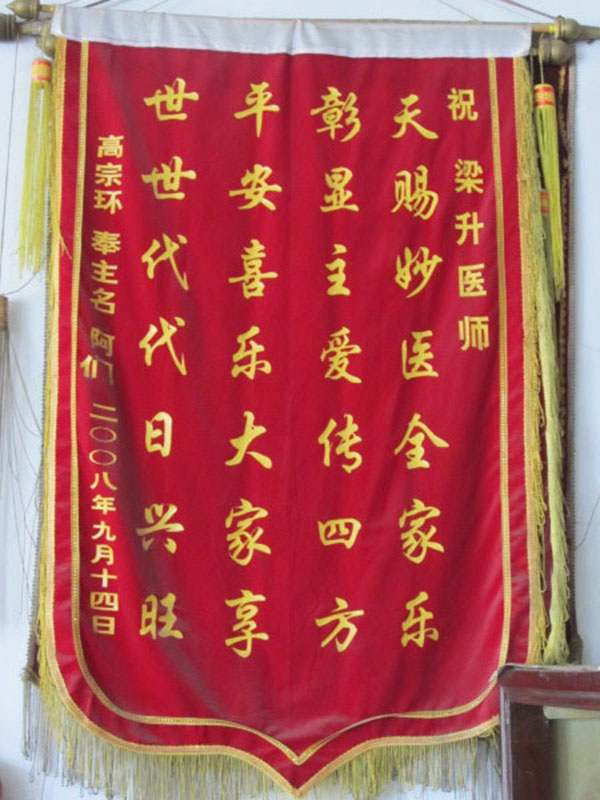 祝 梁升医师
天赐妙医全家乐
彰显主爱传四方
平安喜乐大家享
世世代代日兴旺
高宗环 奉主名 阿们 二〇〇八年九月十四日